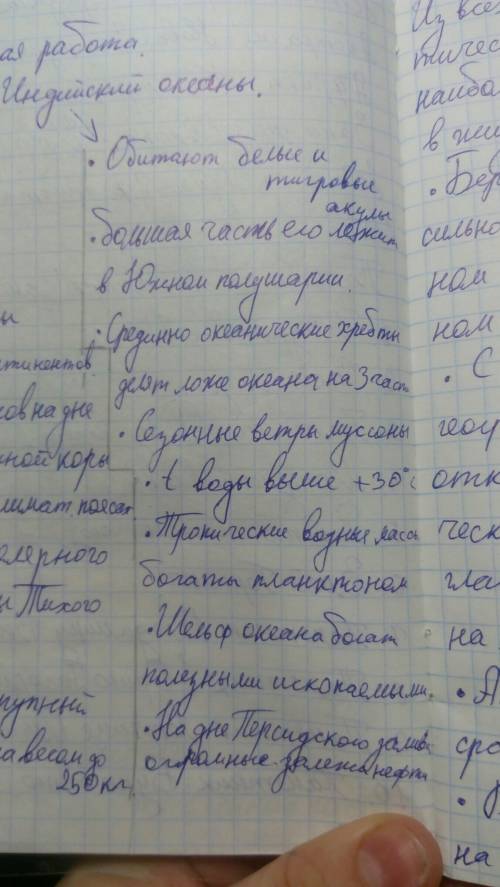 ая работа.
Индийский океаны.
• Обитают белые и
тигровые
акулы
• большая часть его лежит
в Южном полушарии.
• Срединно океанические хребты
делят ложе океана на 3 част
• Сезонные ветры муссоны
• t воды выше +30°с
• Тропические водные массы
богаты планктоном
• Шельф океана богат
полезными ископаемыми.
• На дне Персидского залива
огромные залежи нефти
ы
тинентов
ков на дне
ной коры
лимат. поясах
олярного
ы Тихого
рупный
а весом до
250 кг.
Из все
тичес
наибо
в жи
• Бер
сильно
ном
ном
• С
геогр
отк
ческ
гла
на
• А
сро
на